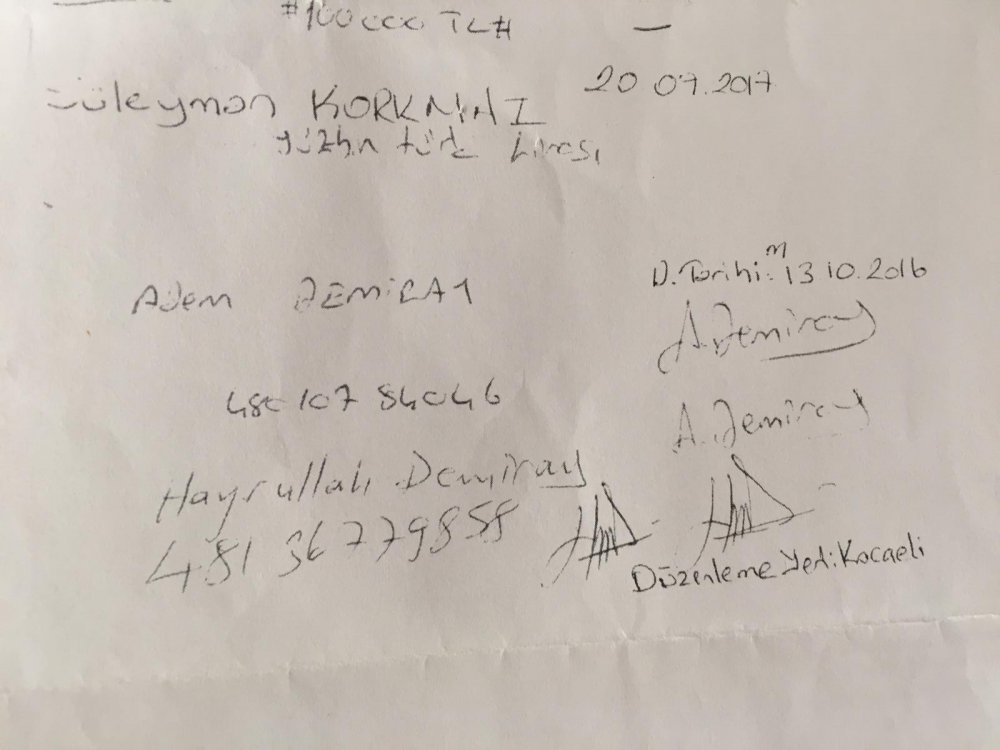 #100000 TL#
20 07.2017
Süleyman KORKMAZ
yüzbin türk Lirası
D. Tarihi: 13 10.2016
Adem DEMİRAY
A.Demiray
48010784046
A. Demiray
Hayrullah Demiray
48136779858
Düzenleme Yeri: Kocaeli